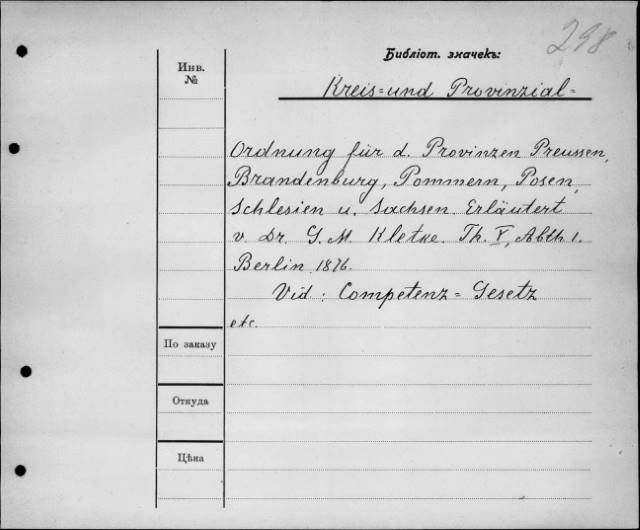 298
Библіот. значекъ:
Инв.
№
Kreis=und Provinzial=
Ordnung für d. Provinzen Preussen,
Brandenburg, Pommern, Posen,
Schlesien u. Sachsen. Erläutert
v. Dr. G. M. Kletke. Th. V, Abth 1.
Berlin 1876.
Vid: Competenz=Gesetz
etc.
По заказу
Откуда
Цѣна